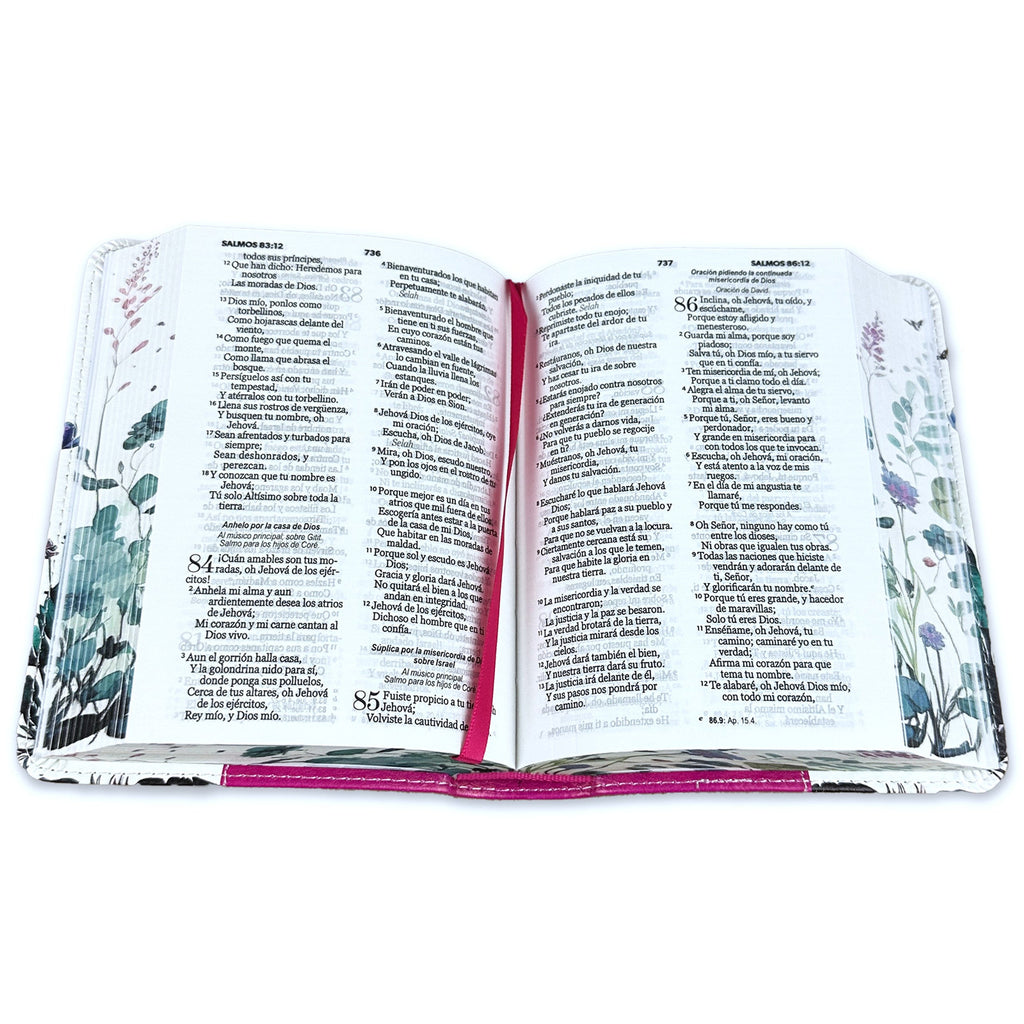 SALMOS 83:12
736
todos sus príncipes,
12 Que han dicho: Heredemos para
nosotros
Las moradas de Dios.
13 Dios mío, ponlos como
torbellinos,
Como hojarascas delante del
viento,
14 Como fuego que quema el
monte,
Como llama que abrasa el
bosque.
15 Persíguelos así con tu
tempestad,
Y atérralos con tu torbellino.
16 Llena sus rostros de vergüenza,
Y busquen tu nombre, oh
Jehová.
17 Sean afrentados y turbados para
siempre;
Sean deshonrados, y
perezcan.
18 Y conozcan que tu nombre es
Jehová;
Tú solo Altísimo sobre toda la
tierra.
Anhelo por la casa de Dios
Al músico principal, sobre Gitit.
Salmo para los hijos de Coré.
84 ¡Cuán amables son tus mo-
radas, oh Jehová de los ejér-
citos!
2 Anhela mi alma y aun
ardientemente desea los atrios
de Jehová;
Mi corazón y mi carne cantan al
Dios vivo.
3 Aun el gorrión halla casa,
Y la golondrina nido para sí,
donde ponga sus polluelos,
Cerca de tus altares, oh Jehová
de los ejércitos,
Rey mío, y Dios mío.
4 Bienaventurados los que habitan
en tu casa;
Perpetuamente te alabarán.
Selah
5 Bienaventurado el hombre que
tiene en ti sus fuerzas,
En cuyo corazón están tus
caminos.
6 Atravesando el valle de lágrimas
lo cambian en fuente,
Cuando la lluvia llena los
estanques.
7 Irán de poder en poder;
Verán a Dios en Sion.
8 Jehová Dios de los ejércitos, oye
mi oración;
Escucha, oh Dios de Jacob.
Selah
9 Mira, oh Dios, escudo nuestro,
Y pon los ojos en el rostro de tu
ungido.
10 Porque mejor es un día en tus
atrios que mil fuera de ellos.
Escogería antes estar a la puerta
de la casa de mi Dios,
Que habitar en las moradas de
maldad.
11 Porque sol y escudo es Jehová
Dios;
Gracia y gloria dará Jehová.
No quitará el bien a los que
andan en integridad.
12 Jehová de los ejércitos,
Dichoso el hombre que en ti
confía.
Súplica por la misericordia de
sobre Israel
Al músico principal.
Salmo para los hijos de Coré.
85 Fuiste propicio a tu
Jehová;
Volviste la cautividad de
737
SALMOS 86:12
2 Perdonaste la iniquidad de tu
pueblo;
Todos los pecados de ellos
cubriste. Selah
3 Reprimiste todo tu enojo;
Te apartaste del ardor de tu
ira.
4 Restáuranos, oh Dios de nuestra
salvación,
Y haz cesar tu ira de sobre
nosotros.
5 ¿Estarás enojado contra nosotros
para siempre?
¿Extenderás tu ira de generación
en generación?
6 ¿No volverás a darnos vida,
Para que tu pueblo se regocije
en ti?
7 Muéstranos, oh Jehová, tu
misericordia,
Y danos tu salvación.
8 Escucharé lo que hablará Jehová
Dios;
Porque hablará paz a su pueblo y
a sus santos,
Para que no se vuelvan a la locura.
9 Ciertamente cercana está su
salvación a los que le temen,
Para que habite la gloria en
nuestra tierra.
10 La misericordia y la verdad se
encontraron;
La justicia y la paz se besaron.
11 La verdad brotará de la tierra,
Y la justicia mirará desde los
cielos.
12 Jehová dará también el bien,
Y nuestra tierra dará su fruto.
13 La justicia irá delante de él,
Y sus pasos nos pondrá por
camino.
Oración pidiendo la continuada
misericordia de Dios
Oración de David.
86 Inclina, oh Jehová, tu oído, y
escúchame,
Porque estoy afligido y
menesteroso.
2 Guarda mi alma, porque soy
piadoso;
Salva tú, oh Dios mío, a tu siervo
que en ti confía.
3 Ten misericordia de mí, oh Jehová;
Porque a ti clamo todo el día.
4 Alegra el alma de tu siervo,
Porque a ti, oh Señor, levanto
mi alma.
5 Porque tú, Señor, eres bueno y
perdonador,
Y grande en misericordia para
con todos los que te invocan.
6 Escucha, oh Jehová, mi oración,
Y está atento a la voz de mis
ruegos.
7 En el día de mi angustia te
llamaré,
Porque tú me respondes.
8 Oh Señor, ninguno hay como tú
entre los dioses,
Ni obras que igualen tus obras.
9 Todas las naciones que hiciste
vendrán y adorarán delante de
ti, Señor,
Y glorificarán tu nombre.e
10 Porque tú eres grande, y hacedor
de maravillas;
Solo tú eres Dios.
11 Enséñame, oh Jehová, tu
camino; caminaré yo en tu
verdad;
Afirma mi corazón para que
tema tu nombre.
12 Te alabaré, oh Jehová Dios mío,
con todo mi corazón,
e 86.9: Ap. 15.4.